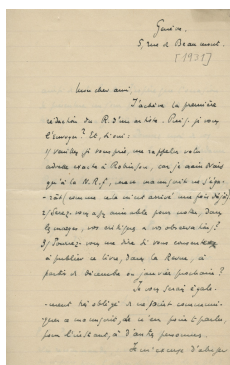 Genève.
5, rue de Beaumont.
[1935]
Mon cher ami,
J'achève la première
rédaction du R. d'un
Puis-je vous
l'envoyer? Et, si oui:
1/ veuillez, je vous prie, me rappeler votre
adresse exacte à Robinson, car je
qu'à la N.R.F., mon manuscrit ne s'éga-
-rât (comme cela m'est arrivé une fois déjà);
2/ Serez-vous assez aimable pour noter, dans
les marges, vos critiques et vos observations?
3/ Pourrez-vous me dire si vous consentez
à publier ce livre, dans la Revue, à
partir de décembre ou janvier prochain?
Je vous serais égale-
-ment très obligé de ne point communi-
-quer ce manuscrit, de n'en point parler
pour l'instant, à d'autres personnes.
Je m'excuse d'abuser